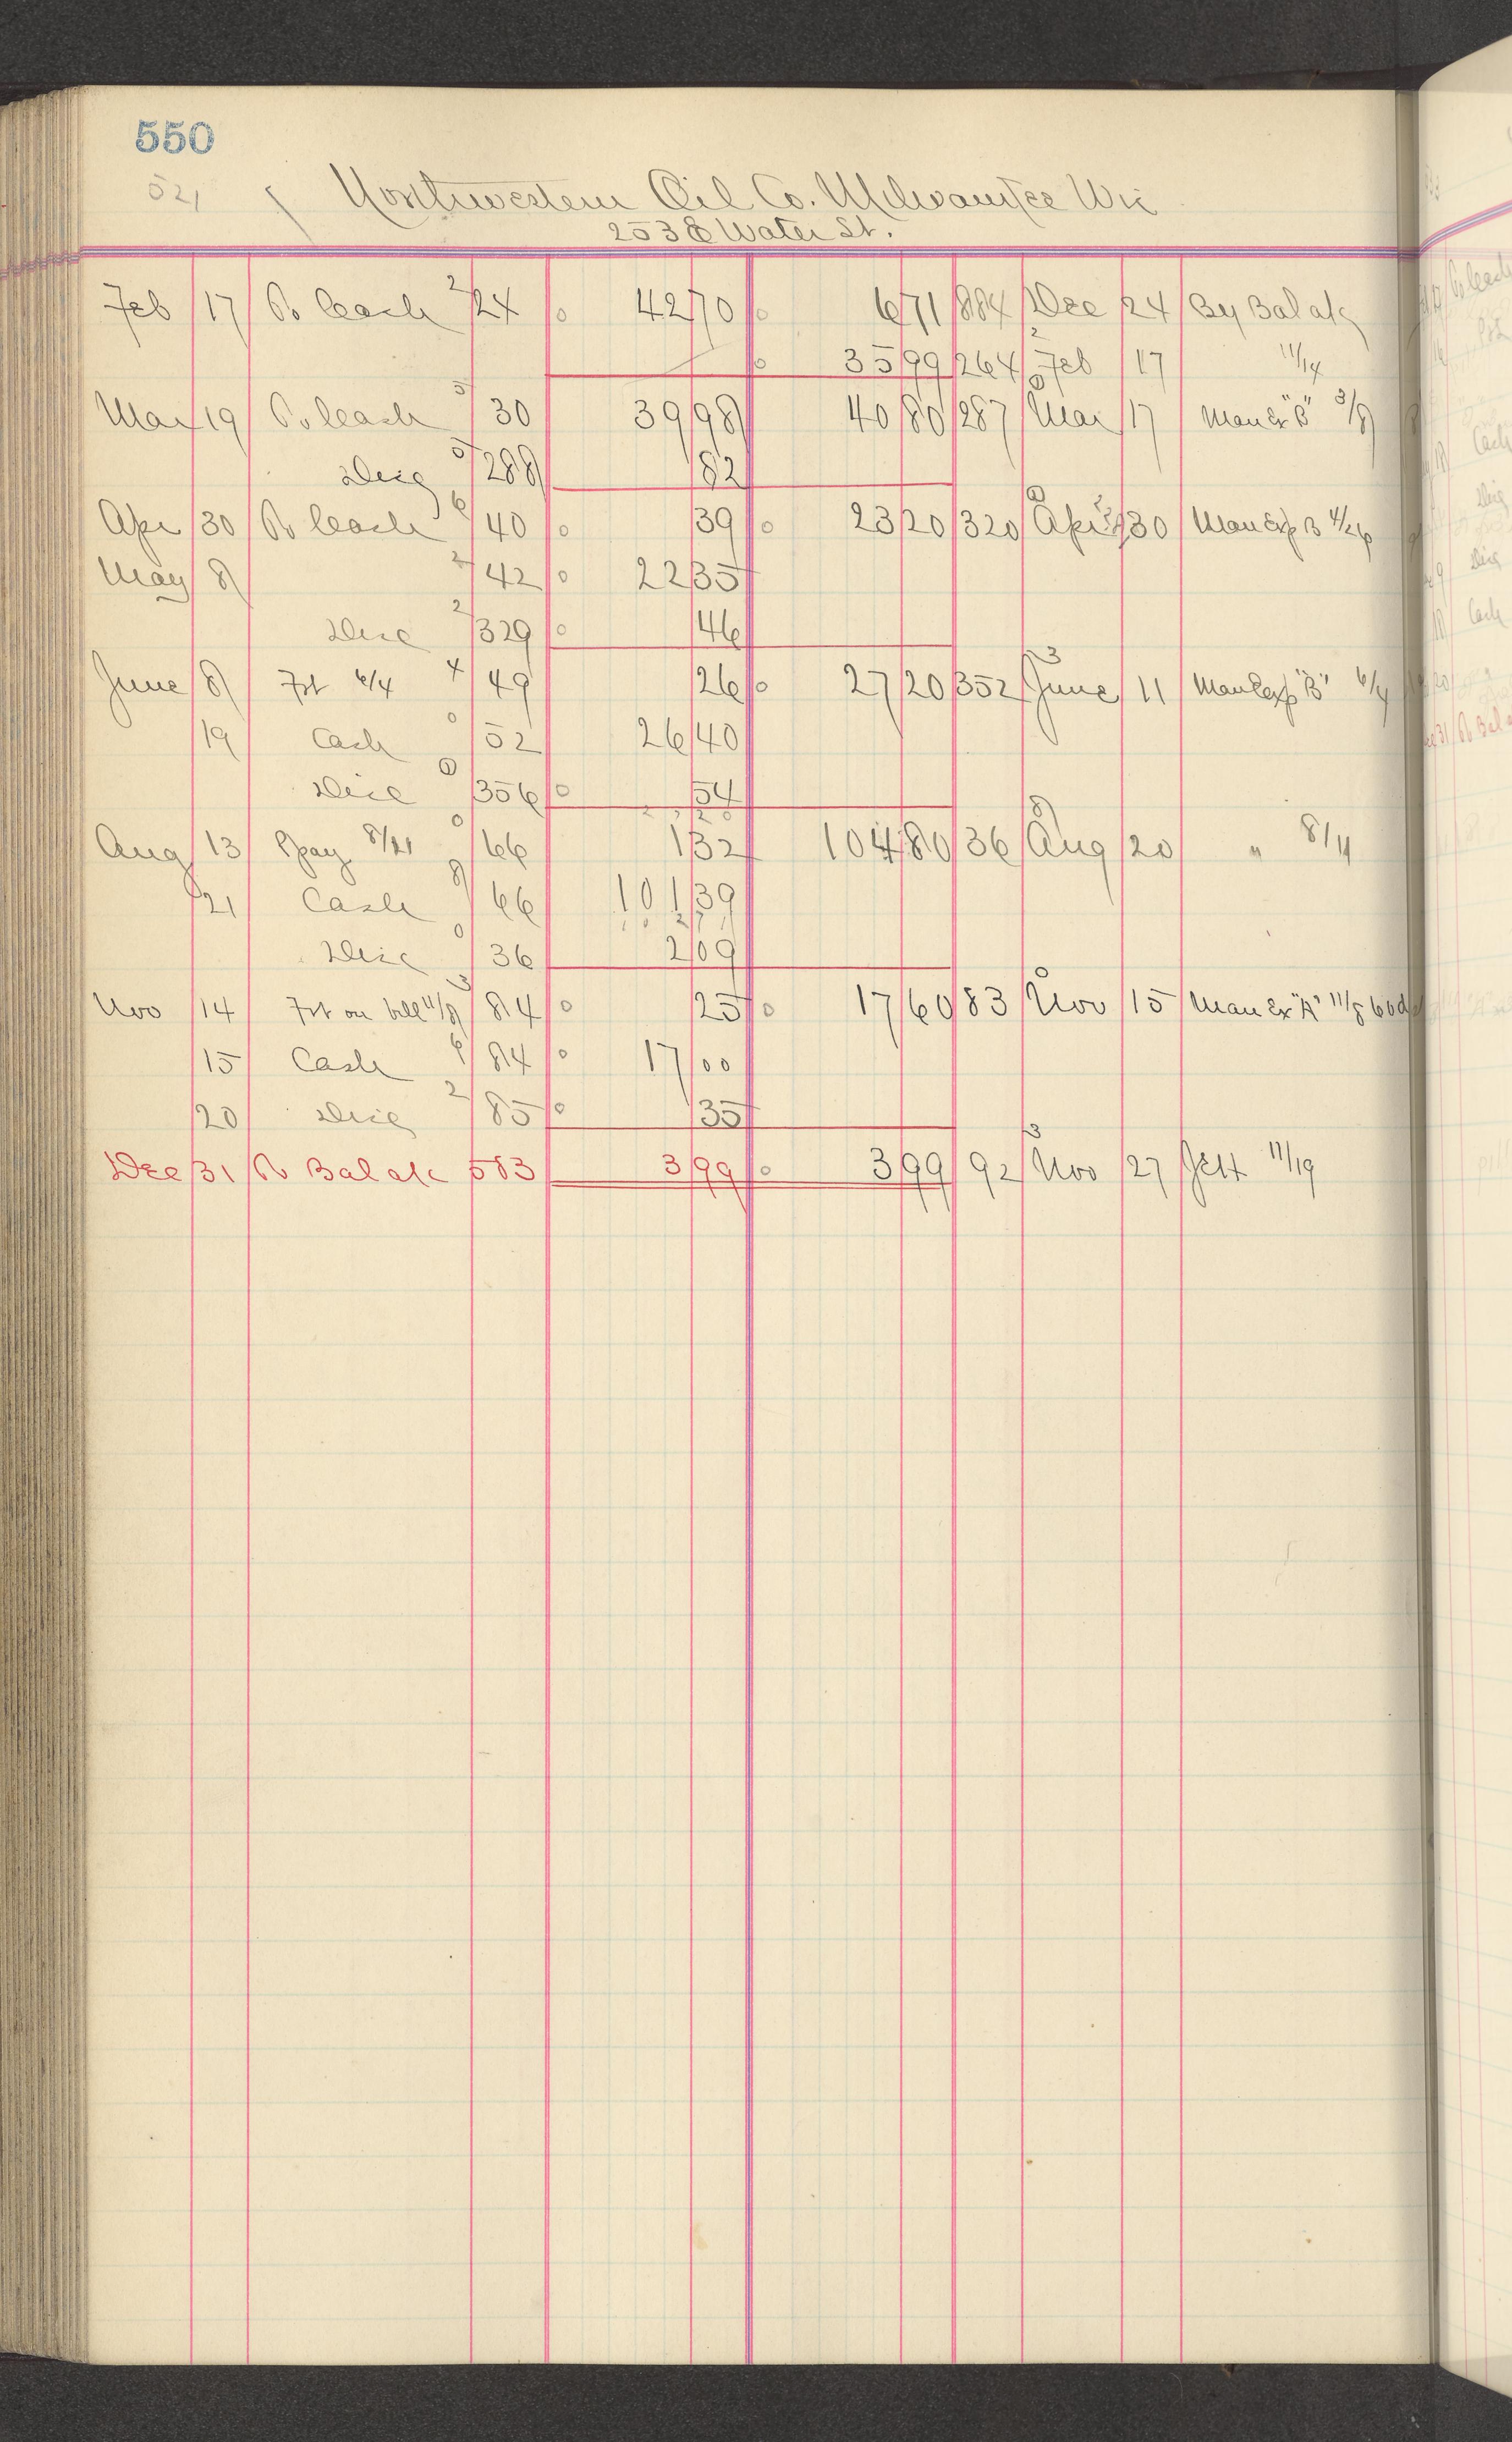 550
521
Northwestern Oil Co. Milwaukee Wis
253 E Water St.
Feb 17 To Cash 2/24 42 70 6 71 884 Dec 24 By Bal a/c
35 99 264 Feb 17 11/14
Mar 19 To Cash 5/30 39 98 40 80 287 Mar 17 Man Ex "B" 3/9
Disc 5/288 82
Apr 30 To Cash 6/40 39 23 20 320 Apr 30 Man Exp B 4/26
May 8 2/42 22 35
Disc 2/329 46
June 8 Frt 6/4 4/49 26 27 20 352 June 11 Man Exp "B" 6/4
19 Cash 52 26 40
Disc 356 54
Aug 13 Xpay 8/11 66 1 32 104 80 36 Aug 20 " 8/4
21 Cash 66 101 39
Disc 36 2 09
Nov 14 Frt on bill 11/8 84 25 17 60 83 Nov 15 Man Ex "A" 11/8 60d
15 Cash 84 17 00
20 Disc 2/85 35
Dec 31 To Bal a/c 583 3 99 3 99 92 Nov 27 11/19